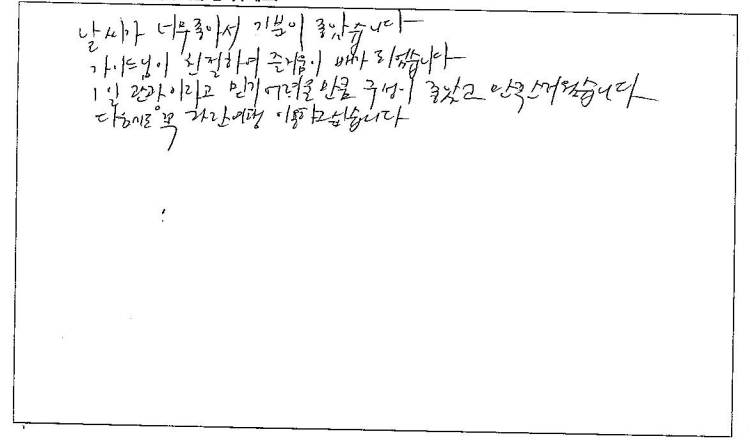 날씨가 너무좋아서 기분이 좋았습니다
가이드님이 친절하여 즐거움이 배가 되었습니다
1일 관광이라고 믿기 어려울 만큼 구성이 좋았고 만족스러웠습니다
꼭 여행 이용하고싶습니다